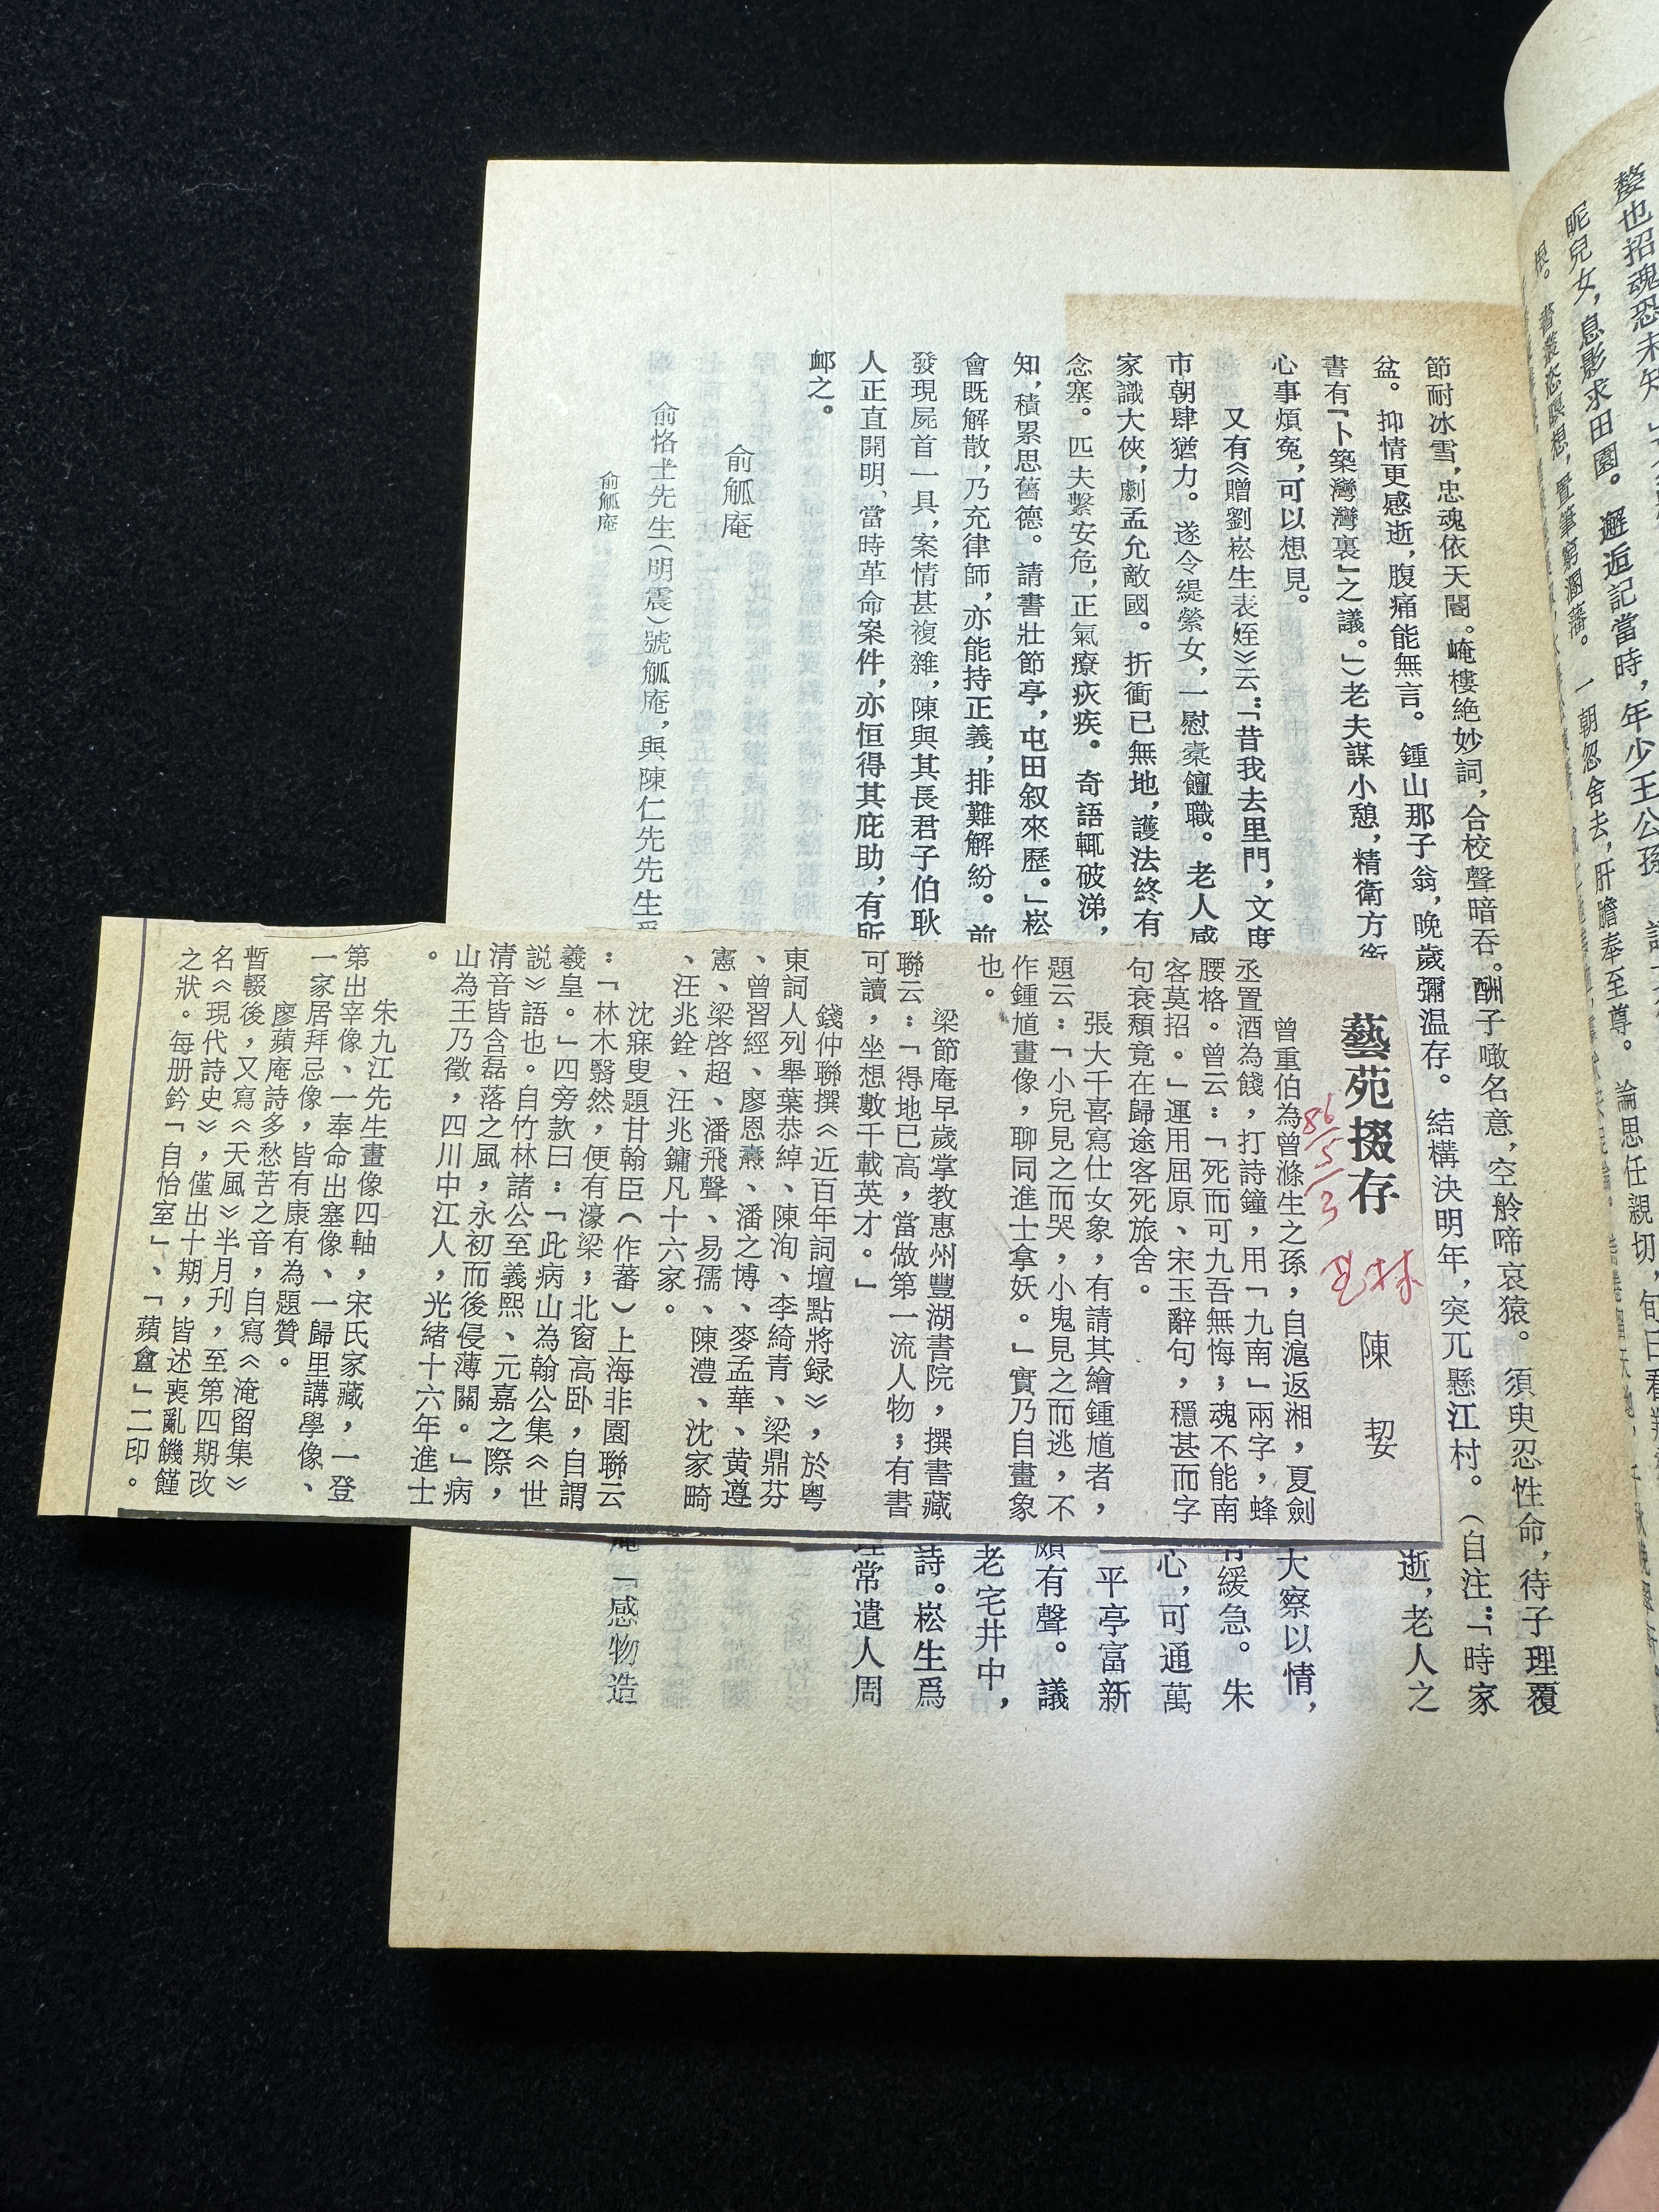 嫠也招魂恐未知
昵兒女，息影求田園。邂逅記當時，年少王公孫
置筆窮溷藩。一朝忽舍去，肝膽奉至尊。論思任親切，旬日
節耐冰雪，忠魂依天閽。崦樓絶妙詞，合校聲暗吞。酬子噉名意，空舲啼哀猿。須臾忍性命，待子理覆
盆。抑情更感逝，腹痛能無言。鍾山那子翁，晚歲彌温存。結構決明年，突兀懸江村。（自注：「時家
書有『卜築灣灣裏』之議。」）老夫謀小憩，精衛方銜
逝，老人之
心事煩寃，可以想見。
又有《贈劉崧生表姪》云：「昔我去里門，文度
大察以情，
市朝肆猶力。遂令緹縈女，一慰橐饘職。老人感
有緩急。朱
家識大俠，劇孟允敵國。折衝已無地，護法終有
心，可通萬
念塞。匹夫繫安危，正氣療疢疾。奇語輒破涕，
平亭富新
知，積累思舊德。請書壯節亭，屯田叙來歷。」崧
頗有聲。議
會既解散，乃充律師，亦能持正義，排難解紛。前
老宅井中，
發現屍首一具，案情甚複雜，陳與其長君子伯耿
詩。崧生爲
人正直開明、當時革命案件，亦恒得其庇助，有所
理常遣人周
卹之。
俞觚庵
俞恪士先生（明震）號觚庵，與陳仁先先生爲
庵「感物造
俞觚庵
藝苑掇存
86/5/3
艺林
陳　挈
曾重伯為曾滌生之孫，自滬返湘，夏劍
丞置酒為餞，打詩鐘，用「九南」兩字，蜂
腰格。曾云：「死而可九吾無悔；魂不能南
客莫招。」運用屈原、宋玉辭句，穩甚而字
句衰頹竟在歸途客死旅舍。
張大千喜寫仕女象，有請其繪鍾馗者，
題云：「小兒見之而哭，小鬼見之而逃，不
作鍾馗畫像，聊同進士拿妖。」實乃自畫象
也。
梁節庵早歲掌教惠州豐湖書院，撰書藏
聯云：「得地已高，當做第一流人物；有書
可讀，坐想數千載英才。」
錢仲聯撰《近百年詞壇點將録》，於粤
東詞人列舉葉恭綽、陳洵、李綺青、梁鼎芬
、曾習經、廖恩燾、潘之博、麥孟華、黄遵
憲、梁啓超、潘飛聲、易孺、陳澧、沈家畸
、汪兆銓、汪兆鏞凡十六家。
沈寐叟題甘翰臣（作蕃）上海非園聯云
：「林木翳然，便有濠梁；北窗高卧，自謂
羲皇。」四旁款曰：「此病山為翰公集《世
説》語也。自竹林諸公至義熙、元嘉之際，
清音皆含磊落之風，永初而後侵薄關。」病
山為王乃徵，四川中江人，光緒十六年進士
。
朱九江先生畫像四軸，宋氏家藏，一登
第出宰像、一奉命出塞像、一歸里講學像、
一家居拜忌像，皆有康有為題贊。
廖蘋庵詩多愁苦之音，自寫《淹留集》
暫輟後，又寫《天風》半月刊，至第四期改
名《現代詩史》，僅出十期，皆述喪亂饑饉
之狀。每册鈐「自怡室」、「蘋盦」二印。